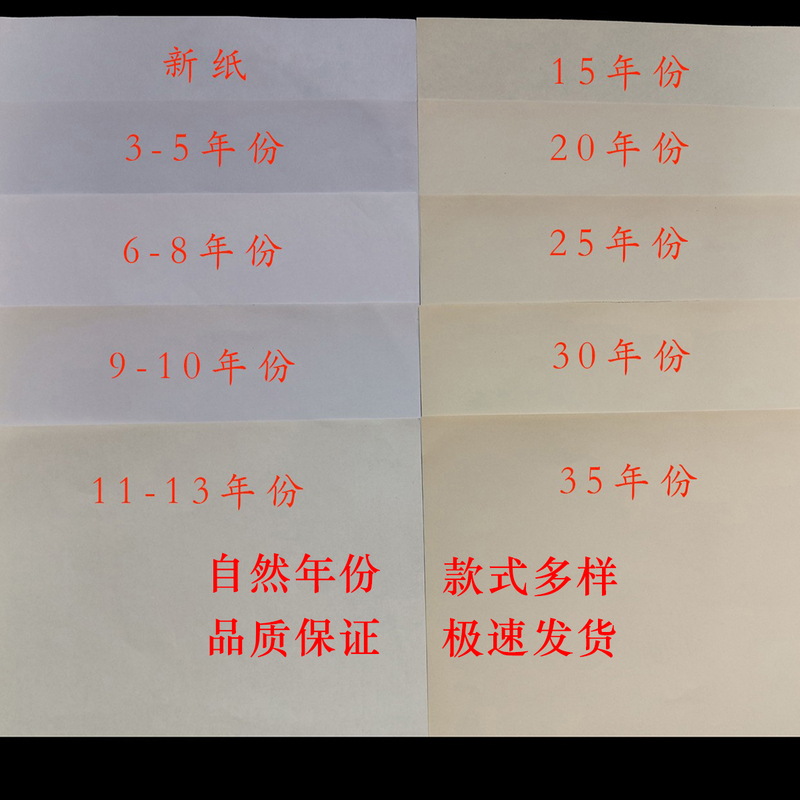 新纸
3-5年份
6-8年份
9-10年份
11-13年份
15年份
20年份
25年份
30年份
35年份
自然年份 款式多样
品质保证 极速发货